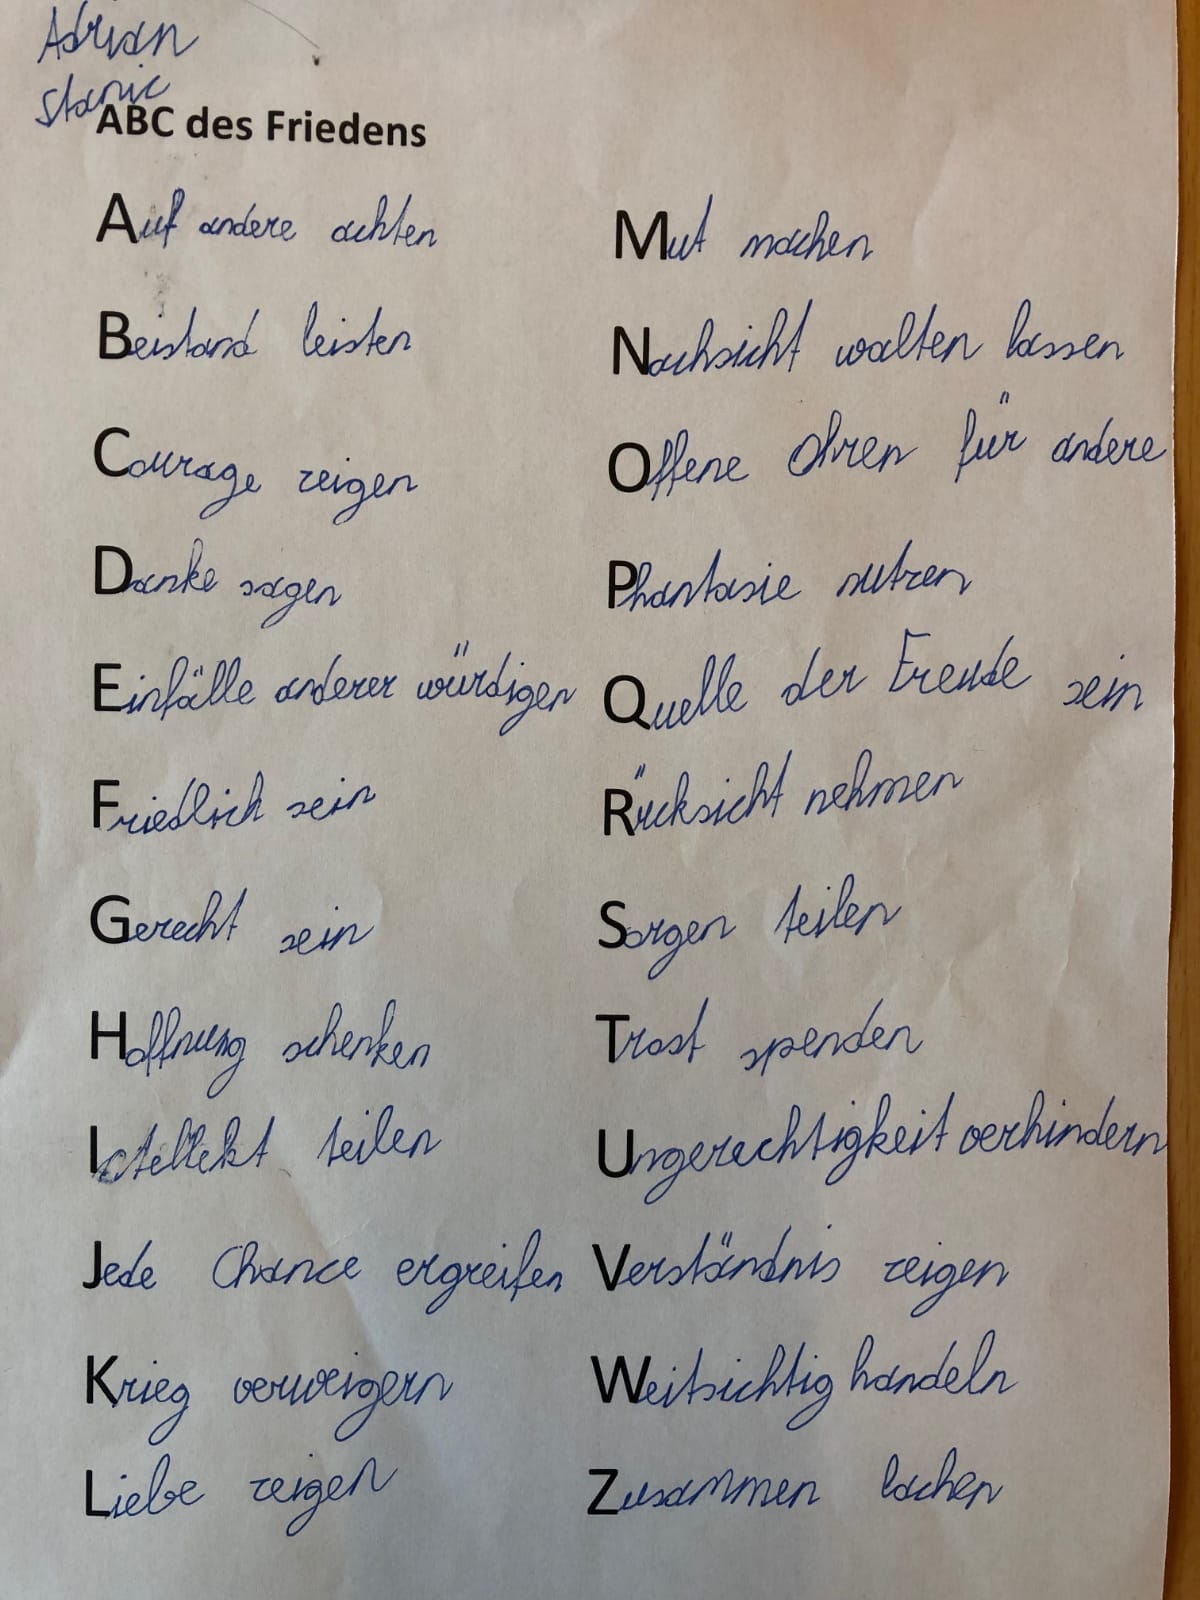 Adrian
Stanic
ABC des Friedens
Auf andere achten
Beistand leisten
Courage zeigen
Danke sagen
Einfälle anderer würdigen
Friedlich sein
Gerecht sein
Hoffnung schenken
Intellekt teilen
Jede Chance ergreifen
Krieg verweigern
Liebe zeigen
Mut machen
Nachsicht walten lassen
Offene Ohren für andere
Phantasie nutzen
Quelle der Freude sein
Rücksicht nehmen
Sorgen teilen
Trost spenden
Ungerechtigkeit verhindern
Verständnis zeigen
Weitsichtig handeln
Zusammen lachen